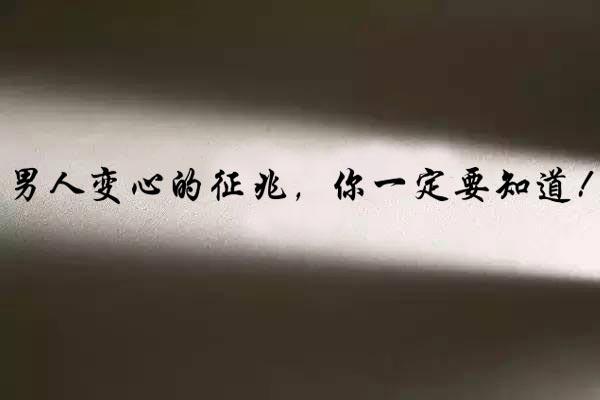 男人变心的征兆，你一定要知道！